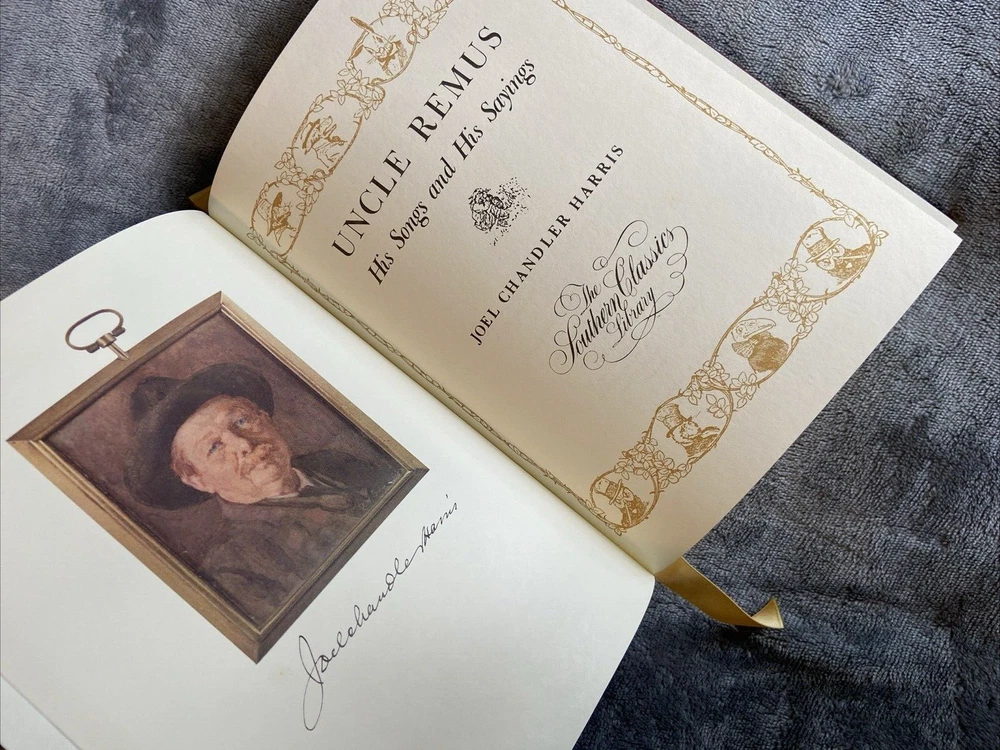 Joel Chandler Harris
UNCLE REMUS
His Songs and His Sayings
JOEL CHANDLER HARRIS
The
Southern Classics
Library